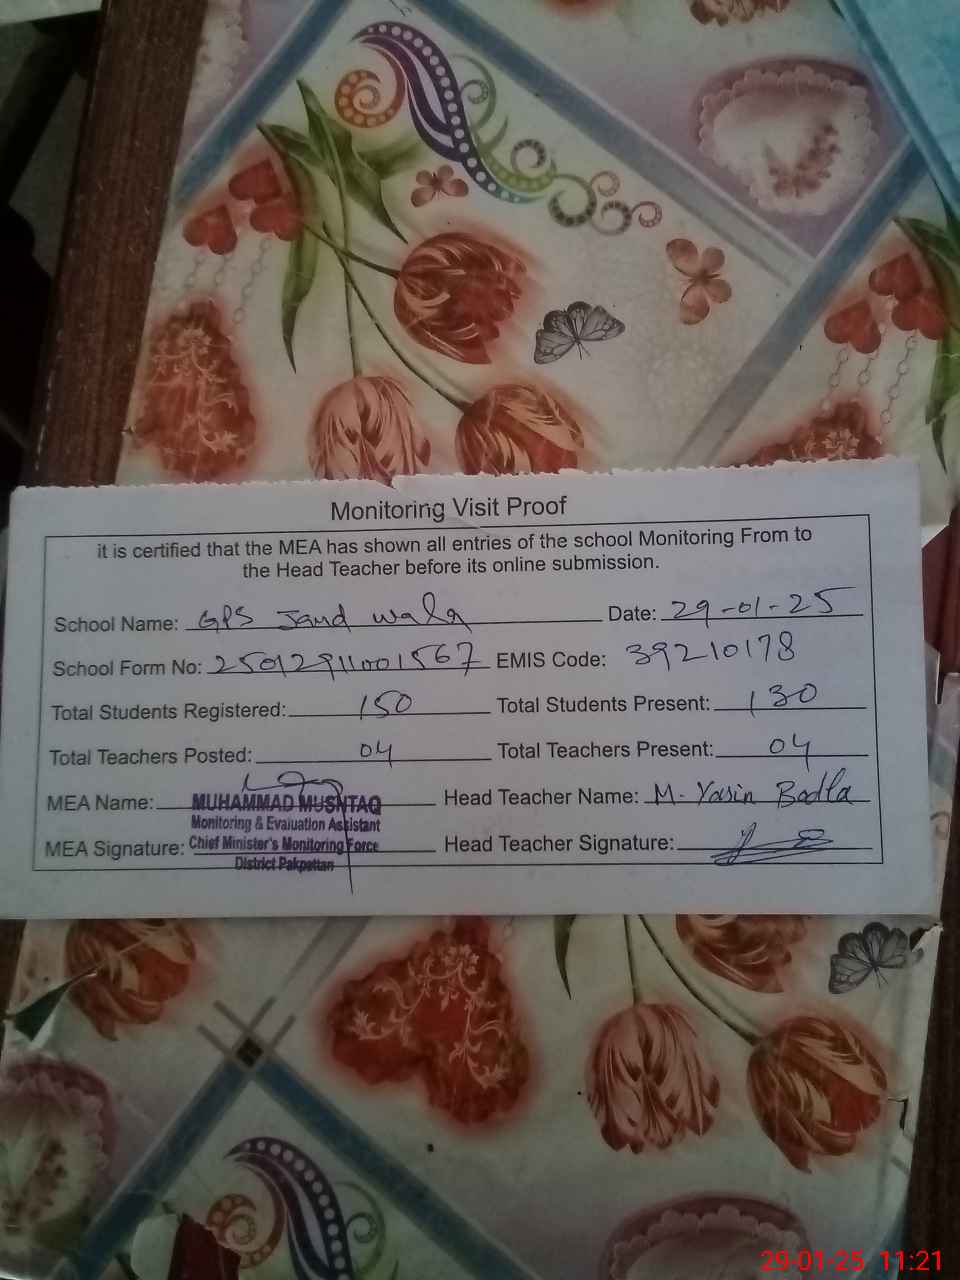 Monitoring Visit Proof
it is certified that the MEA has shown all entries of the school Monitoring From to
the Head Teacher before its online submission.
School Name: GPS Jand wala Date: 29-01-25
School Form No: 25012911001567 EMIS Code: 39210178
Total Students Registered: 150 Total Students Present: 130
Total Teachers Posted: 04 Total Teachers Present: 04
MEA Name: MUHAMMAD MUSHTAQ Head Teacher Name: M. Yasin Bodla
Monitoring & Evaluation Assistant
MEA Signature: Chief Minister's Monitoring Force Head Teacher Signature:
District Pakpattan
29-01-25 11:21